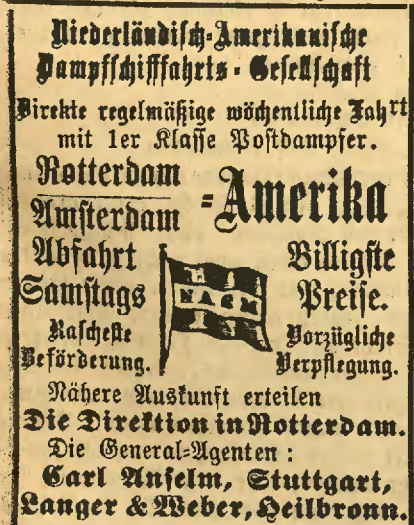 Niederländisch-Amerikanische
Dampfschifffahrts-Gesellschaft
Direkte regelmäßige wöchentliche Fahrt
mit 1er Klasse Postdampfer.
Rotterdam
Amsterdam
-Amerika
Abfahrt
Samstags
Rascheste
Beförderung.
NASM
Billigste
Preise.
Vorzügliche
Verpflegung.
Nähere Auskunft erteilen
Die Direktion in Rotterdam.
Die General-Agenten:
Carl Anselm, Stuttgart,
Langer & Weber, Heilbronn.